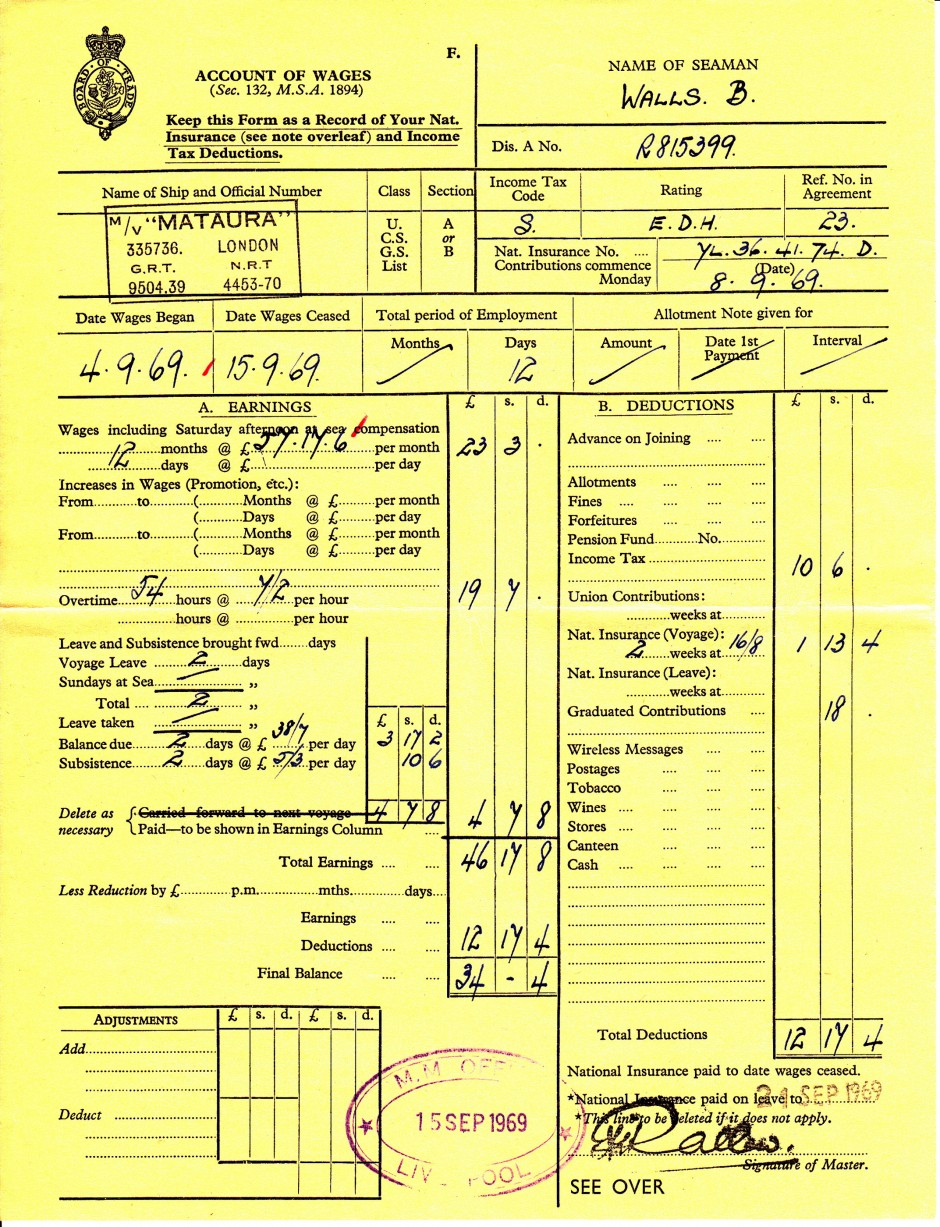 BOARD OF TRADE
F.
ACCOUNT OF WAGES
(Sec. 132, M.S.A. 1894)
Keep this Form as a Record of Your Nat.
Insurance (see note overleaf) and Income
Tax Deductions.
NAME OF SEAMAN
WALLS. B.
Dis. A No. R815399.
Name of Ship and Official Number
M/V "MATAURA"
335736. LONDON
G.R.T. N.R.T
9504.39 4453-70
Class Section
U. A
C.S. or
G.S. B
List
Income Tax Code Rating Ref. No. in Agreement
S. E.D.H. 23.
Nat. Insurance No. .... YL. 36. 41. 74. D.
Contributions commence (Date)
Monday 8. 9. 69.
Date Wages Began Date Wages Ceased Total period of Employment Allotment Note given for
Months Days Amount Date 1st Payment Interval
4.9.69. 15.9.69. 12
A. EARNINGS £ s. d.
Wages including Saturday afternoon at sea compensation
12 months @ £ 57.17.6 per month 23 3 .
days @ £ per day
Increases in Wages (Promotion, etc.):
From to ( Months @ £ per month
( Days @ £ per day
From to ( Months @ £ per month
( Days @ £ per day
Overtime 54 hours @ 7/2 per hour 19 7 .
hours @ per hour
Leave and Subsistence brought fwd. days
Voyage Leave 2 days
Sundays at Sea "
Total .... 2 "
Leave taken "
£ s. d.
Balance due 2 days @ £ 38/7 per day 3 17 2
Subsistence 2 days @ £ 5/3 per day 10 6
Delete as necessary
Carried forward to next voyage 4 7 8
Paid—to be shown in Earnings Column .... 4 7 8
Total Earnings .... .... 46 17 8
Less Reduction by £ p.m. mths. days
Earnings .... ....
Deductions .... .... 12 17 4
Final Balance .... .... 34 - 4
B. DEDUCTIONS £ s. d.
Advance on Joining .... ....
Allotments .... .... ....
Fines .... .... ....
Forfeitures .... ....
Pension Fund No.
Income Tax 10 6 .
Union Contributions:
weeks at
Nat. Insurance (Voyage): 16/8
2 weeks at 1 13 4
Nat. Insurance (Leave):
weeks at
Graduated Contributions .... 18 .
Wireless Messages .... ....
Postages .... .... ....
Tobacco .... .... ....
Wines .... .... .... ....
Stores .... .... .... ....
Canteen .... .... ....
Cash .... .... .... ....
Total Deductions 12 17 4
ADJUSTMENTS £ s. d. £ s. d.
Add
Deduct
M.M. OFF
15 SEP 1969
LIV POOL
National Insurance paid to date wages ceased.
*National Insurance paid on leave to 21 SEP 1969
*This line to be deleted if it does not apply.
Signature of Master.
SEE OVER